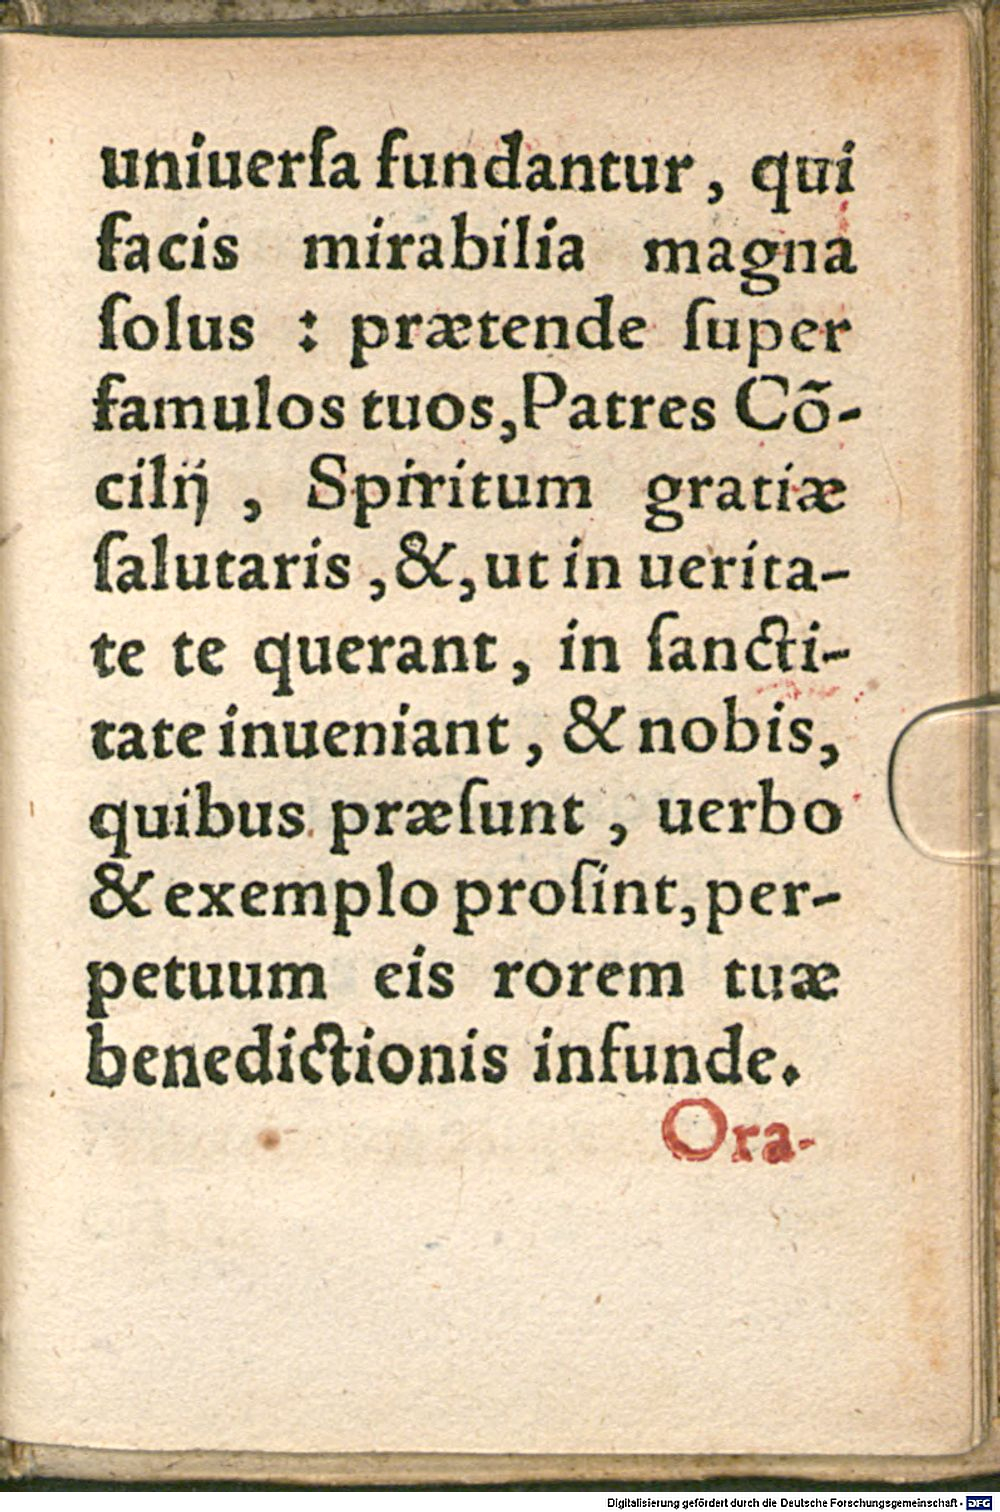 uniuerſa fundantur, qui
facis mirabilia magna
ſolus : prætende ſuper
famulos tuos, Patres Cõ-
cilij, Spiritum gratiæ
ſalutaris, &, ut in uerita-
te te querant, in ſancti-
tate inueniant, & nobis,
quibus præſunt, uerbo
& exemplo proſint, per-
petuum eis rorem tuæ
benedictionis infunde.
Ora-
Digitalisierung gefördert durch die Deutsche Forschungsgemeinschaft - DFG